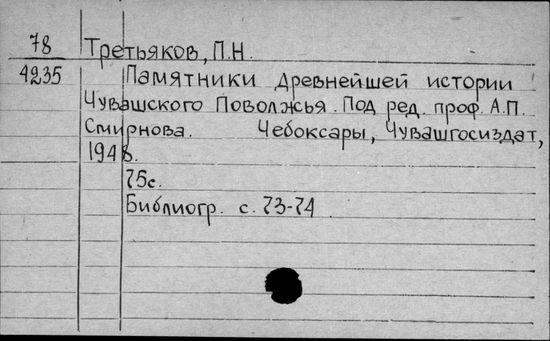 78 Третьяков, П.Н.
4235 Памятники древнейшей истории
Чувашского Поволжья. Под ред. проф. А.П.
Смирнова. Чебоксары, Чувашгосиздат,
1948.
75с.
Библиогр. с. 73-74.